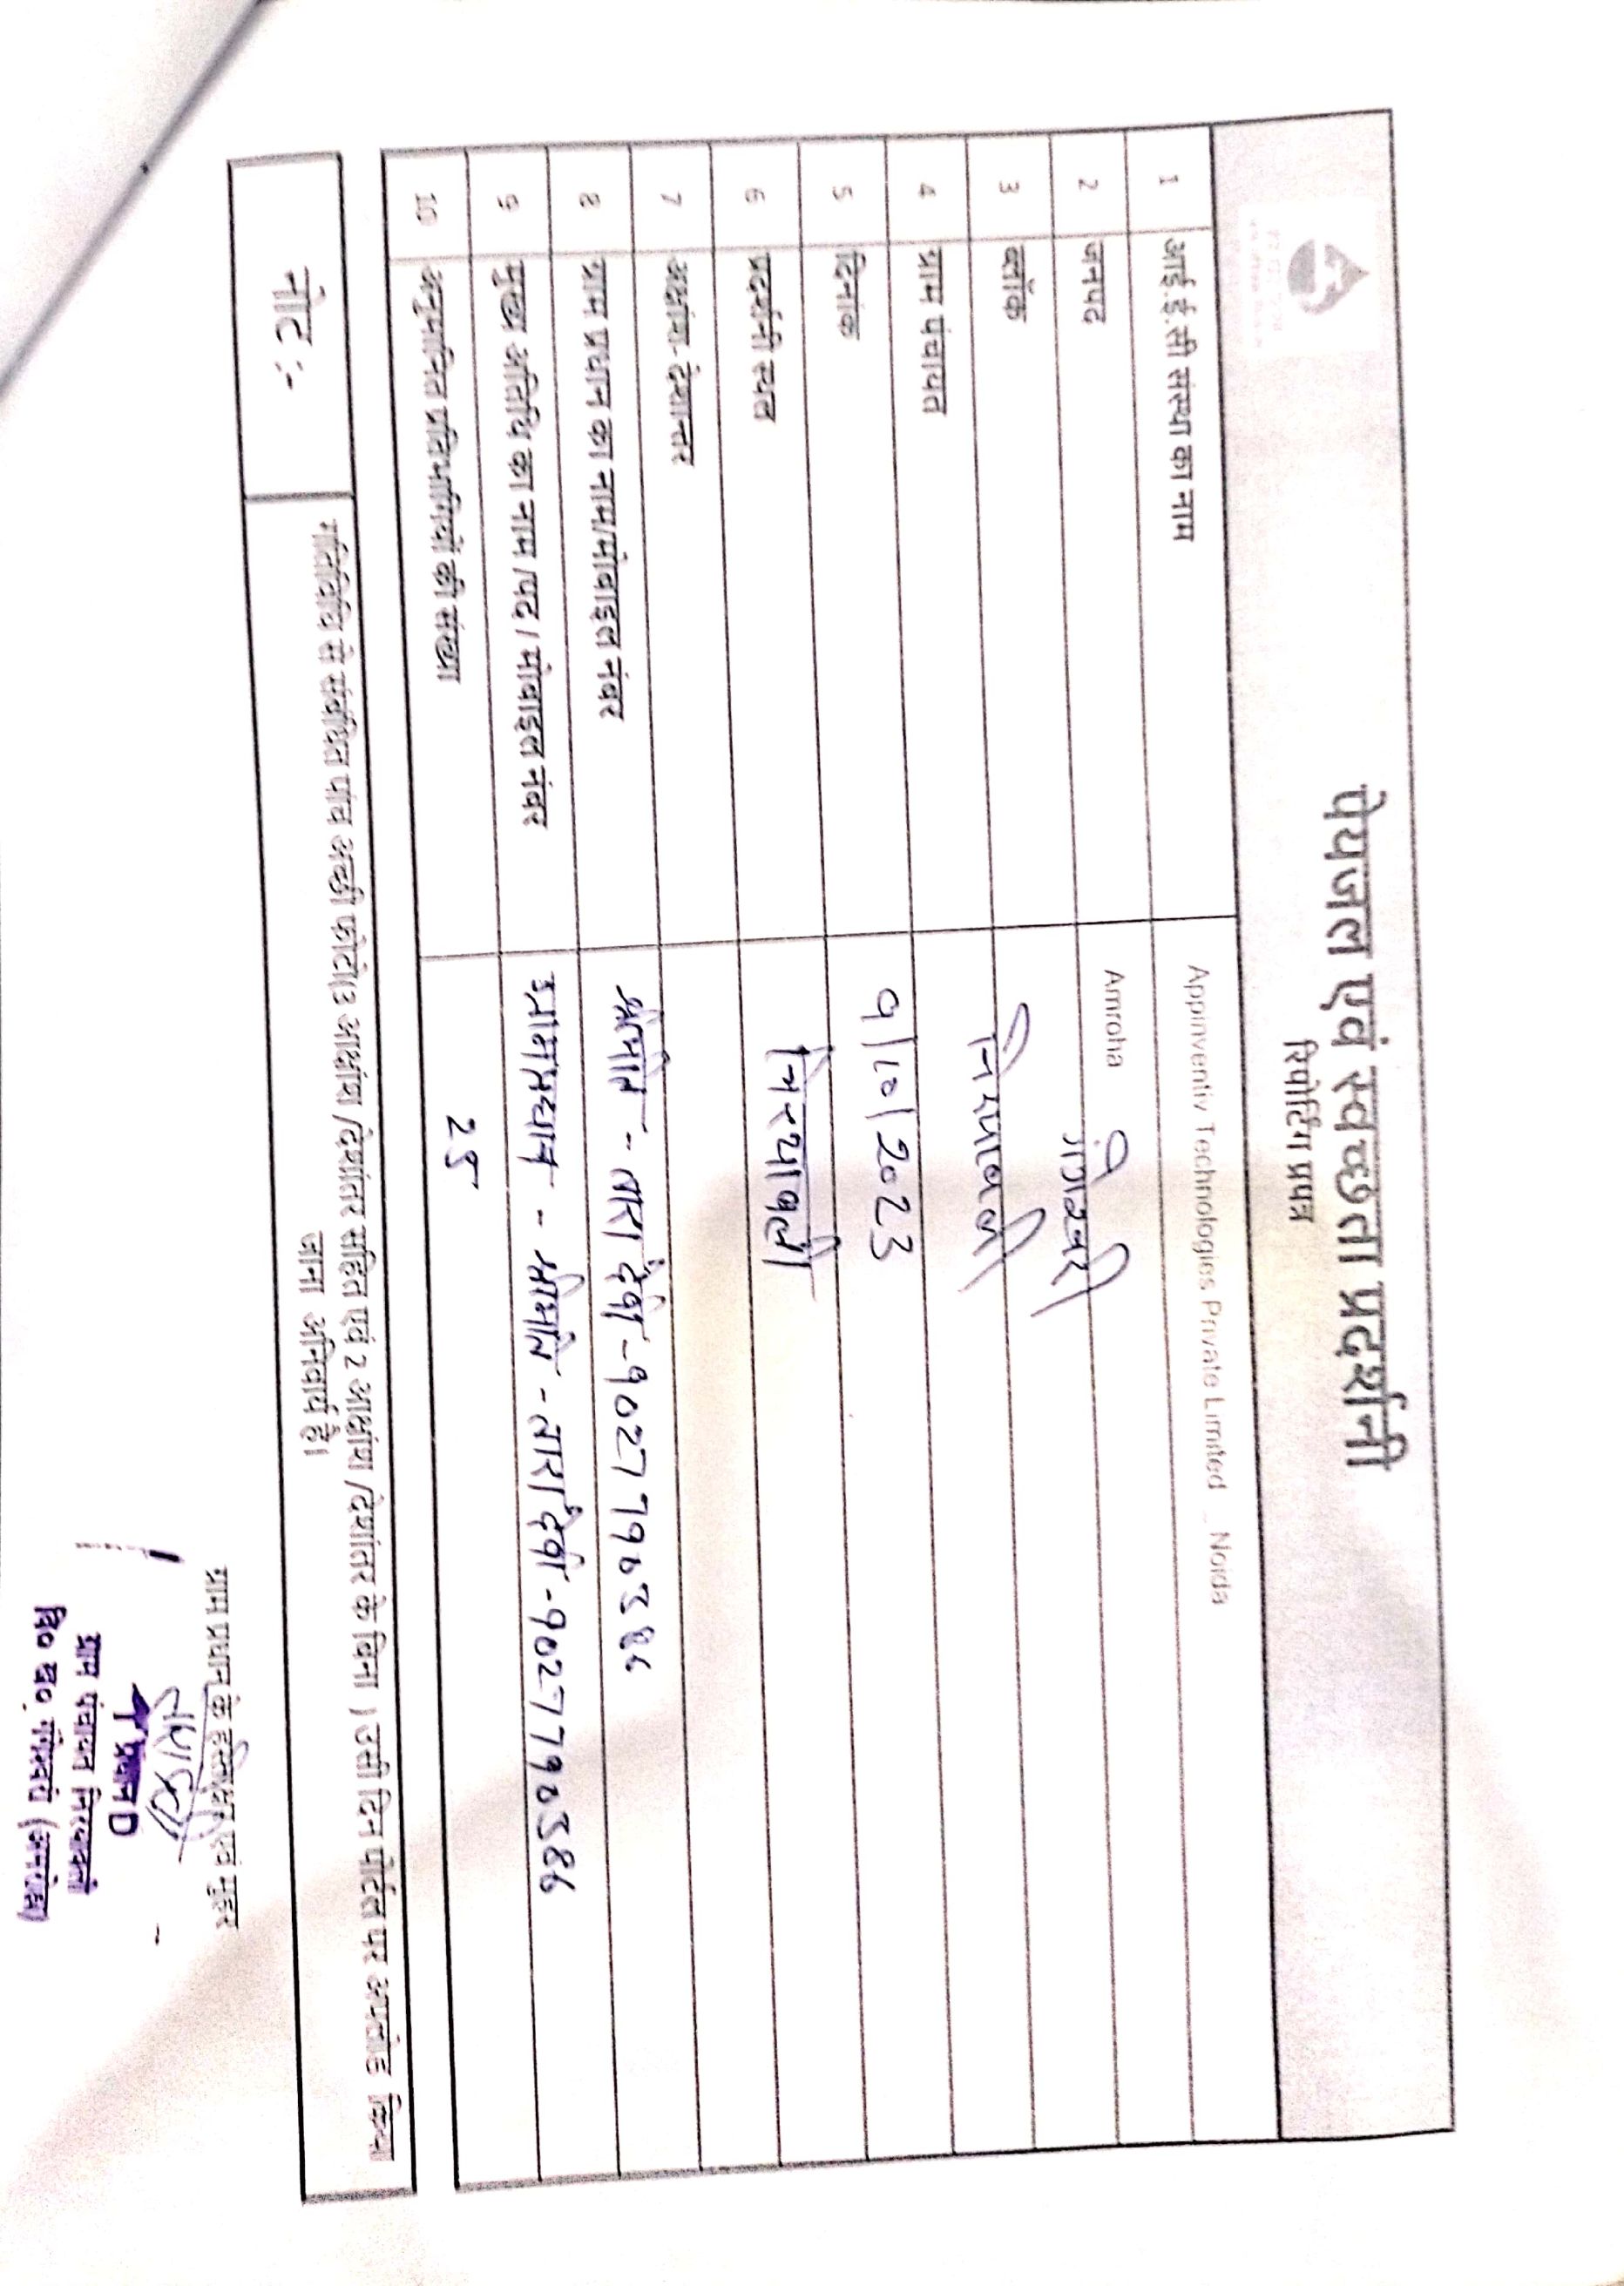 पेयजल एवं स्वच्छता प्रदर्शनी
रिपोर्टिंग प्रपत्र
1 आई.ई.सी संस्था का नाम Appinventiv Technologies Private Limited _ Noida
2 जनपद Amroha
3 ब्लॉक गंगेश्वरी
4 ग्राम पंचायत निरयावली
5 दिनांक 9/10/2023
6 प्रदर्शनी स्थल निरयावली
7 अक्षांश- देशान्तर
8 ग्राम प्रधान का नाम/मोबाइल नंबर श्रीमति - तारा देवी - 9027790586
9 मुख्य अतिथि का नाम /पद / मोबाइल नंबर ग्राम प्रधान - श्रीमति - तारा देवी - 9027790586
10 अनुमानित प्रतिभागियों की संख्या 25
नोट :- गतिविधि से संबंधित पांच अच्छी फोटो(3 आक्षांश /देशांतर सहित एवं 2 आक्षांश /देशांतर के बिना ) उसी दिन पोर्टल पर अपलोड किया
जाना अनिवार्य है।
ग्राम प्रधान के हस्ताक्षर एवं मुहर
प्रधान
ग्राम पंचायत निरयावली
वि० ख०, गंगेश्वरी (अमरोहा)